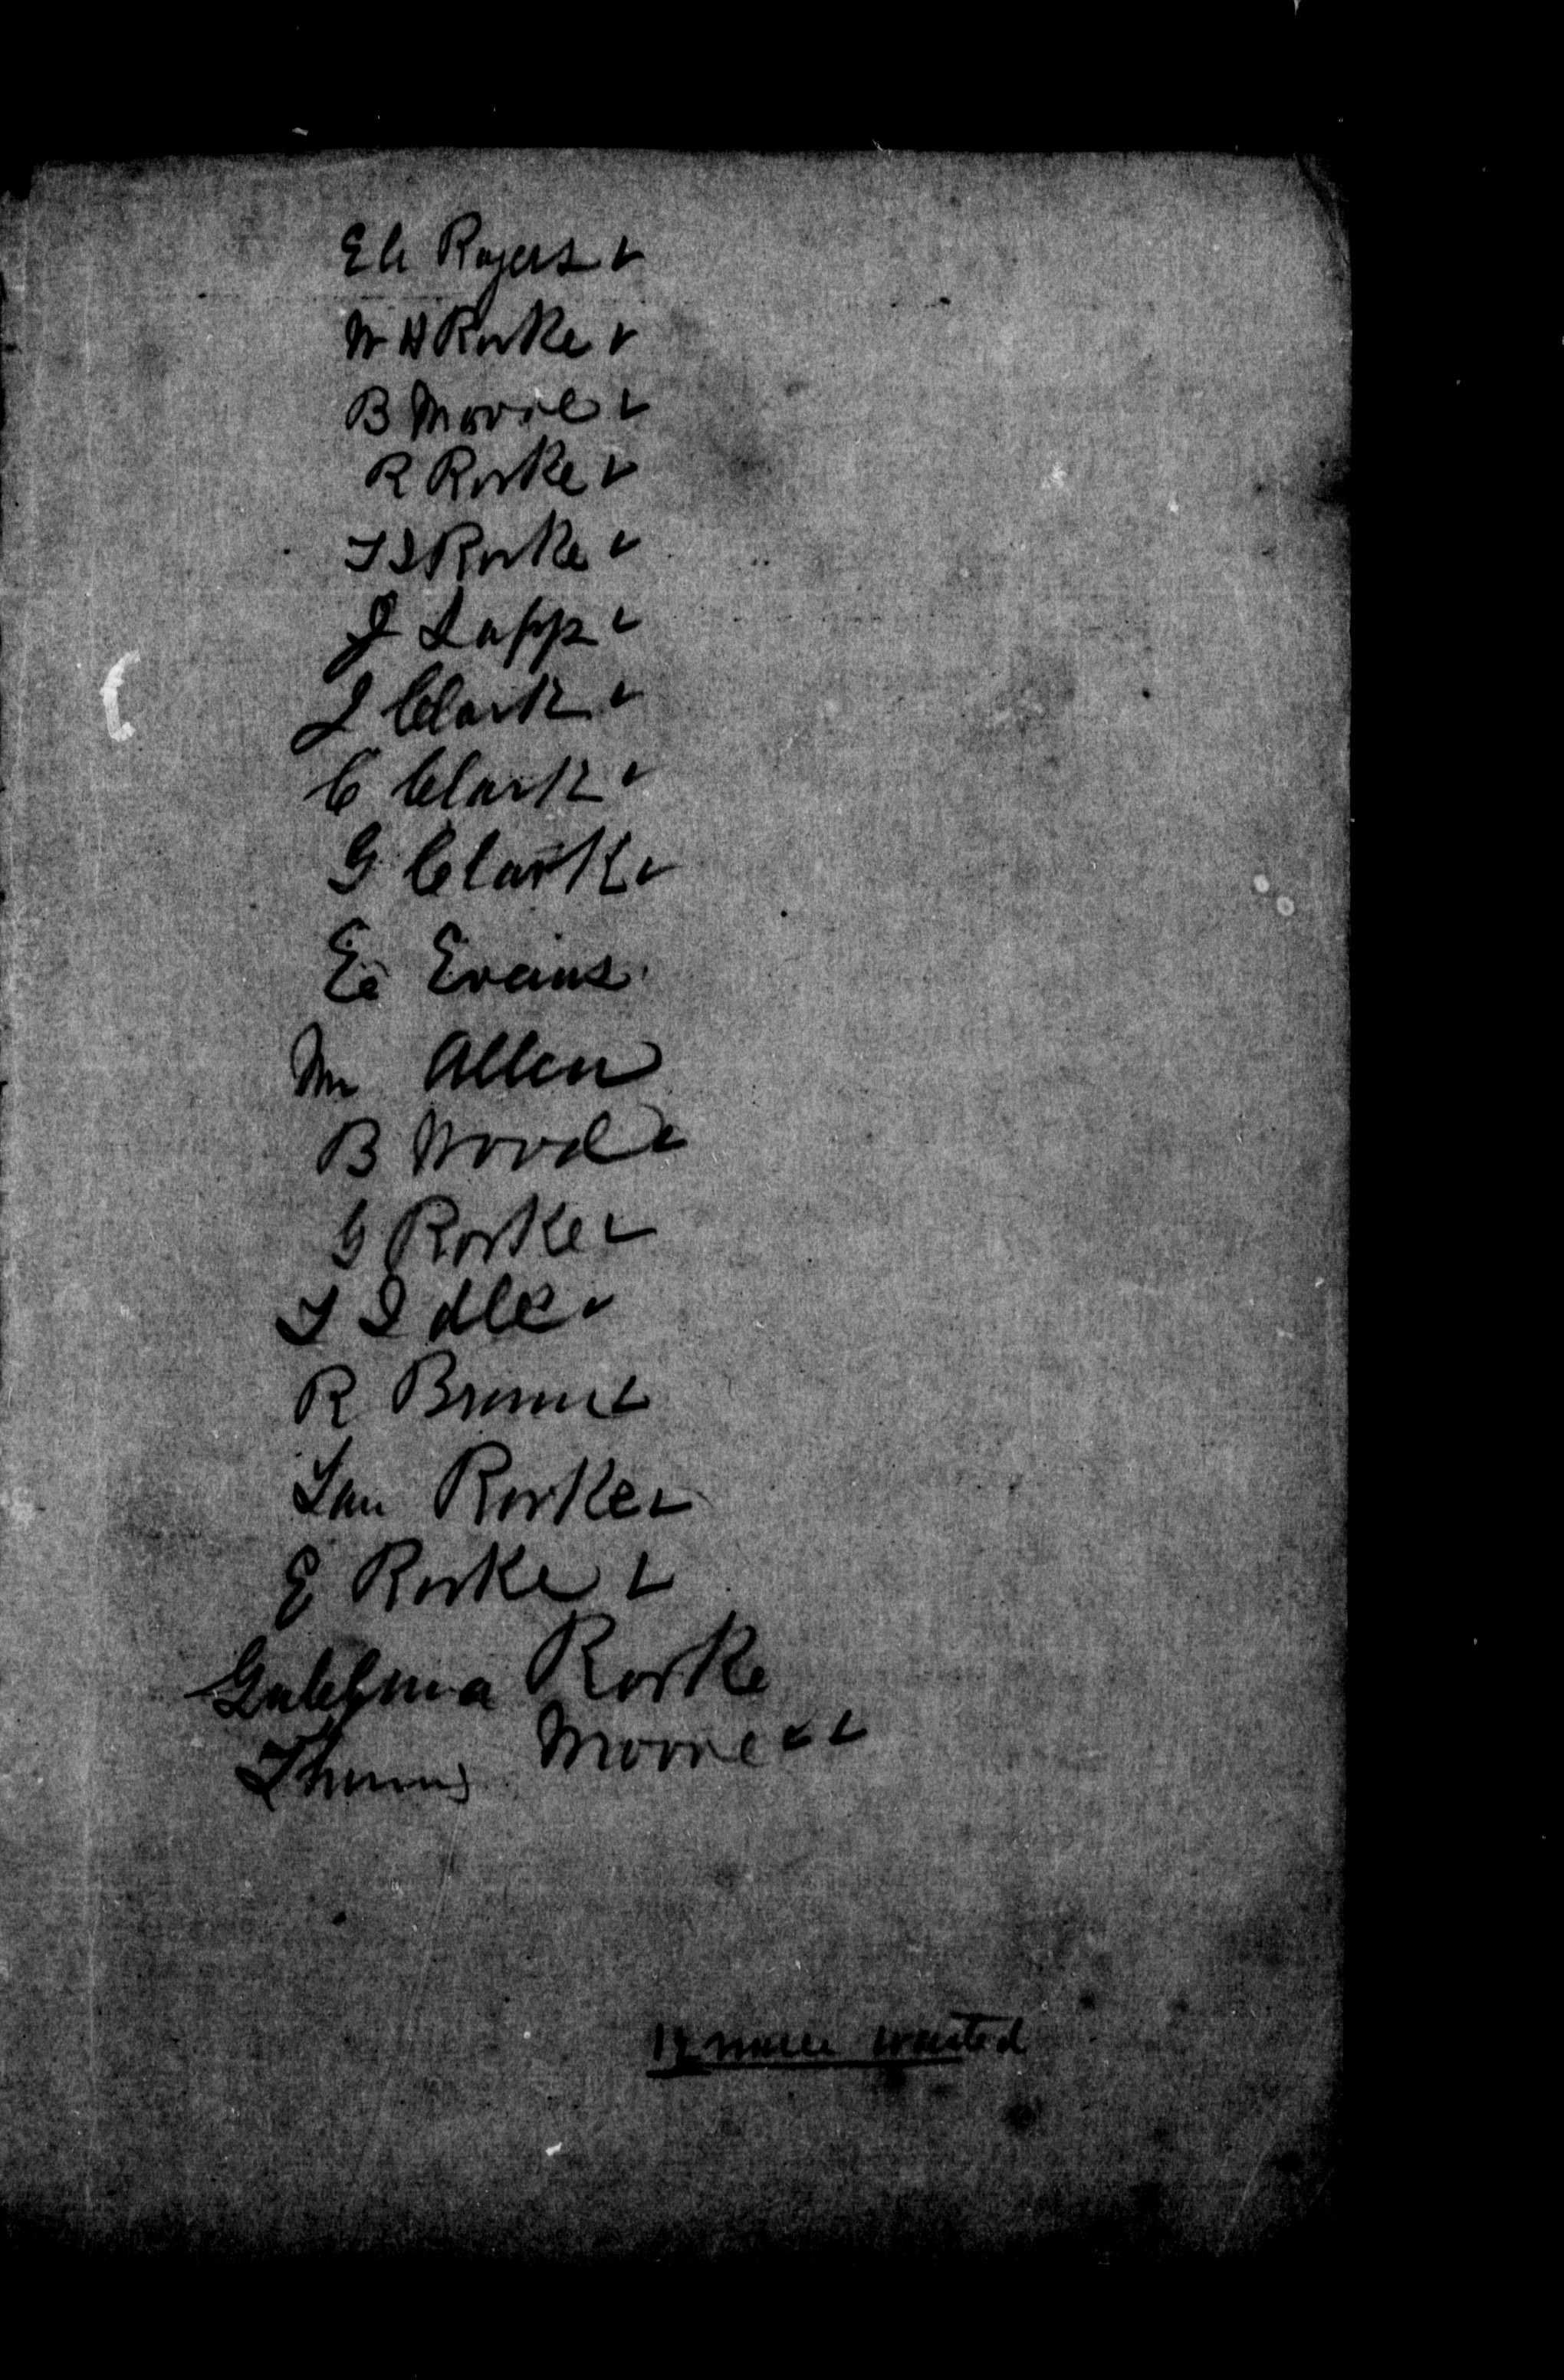 Eli Rogers ✓
W H Rorke ✓
B Moore ✓
R Rorke ✓
T I Rorke ✓
J Lapp ✓
J Clark ✓
C Clark ✓
G Clark ✓
Evans
Allen
B Wood ✓
G Rorke ✓
T Idle ✓
R Brown ✓
Rorke ✓
E Rorke ✓
Gulielma Rorke
Thomas Moore ✓ ✓
more wanted